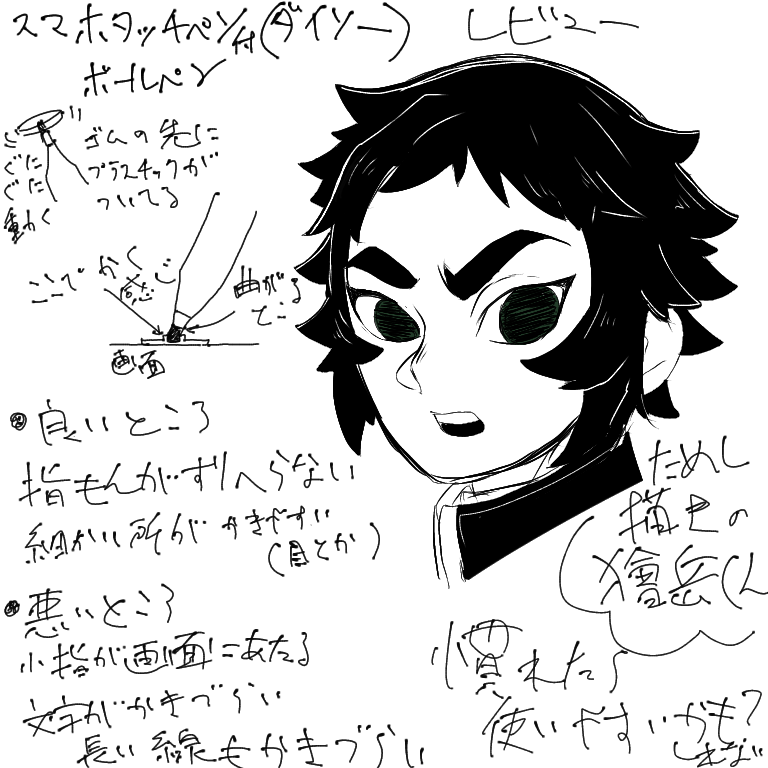 スマホタッチペン付(ダイソー) レビュー
ボールペン
ゴムの先に
プラスチックが
ついてる
ぐにぐに
動く
ここで かく
感じ
曲がる
とこ
画面
●良いところ
指もんがすりへらない
細かい所が かきやすい
(目とか)
●悪いところ
小指が画面にあたる
文字がかきづらい
長い線もかきづらい
ためし
描きの
獪岳くん
慣れたら
使いやすいかも?
しれない